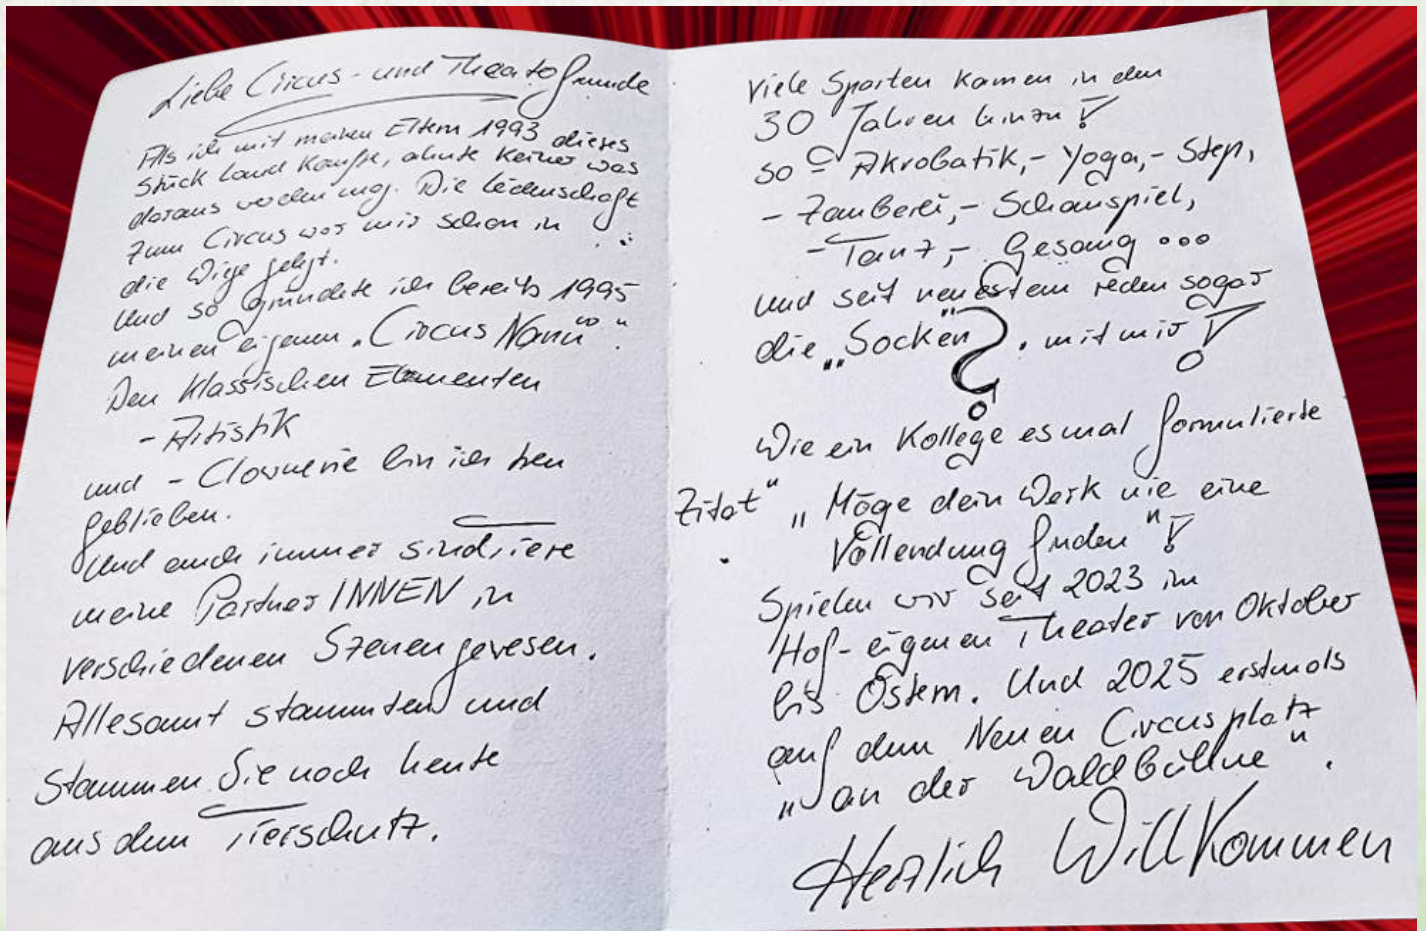 Liebe Circus- und Theaterfreunde
Als ich mit meinen Eltern 1993 dieses
Stück Land kaufte, ahnte keiner was
daraus werden mag. Die Leidenschaft
zum Circus war mir schon in
die Wige gelegt.
Und so gründete ich bereits 1995
meinen eigenen „Circus Nanü".
Den klassischen Elementen
- Artistik
und - Clownerie bin ich treu
geblieben.
Und auch immer sind Tiere
meine PartnerINNEN in
verschiedenen Szenen gewesen.
Allesamt stammten und
stammen Sie noch heute
aus dem Tierschutz.
Viele Sparten kamen in den
30 Jahren hinzu!
so - Akrobatik, - Yoga, - Step,
- Zauberei, - Schauspiel,
- Tanz, - Gesang ...
und seit neuestem reden sogar
die „Socken"?. mit mir!
Wie ein Kollege es mal formulierte
Zitat" „Möge dein Werk nie eine
Vollendung finden"!
Spielen wir seit 2023 im
Hof-eigenen Theater von Oktober
bis Ostern. Und 2025 erstmals
auf dem Neuen Circusplatz
„an der Waldbühne".
Herzlich Willkommen